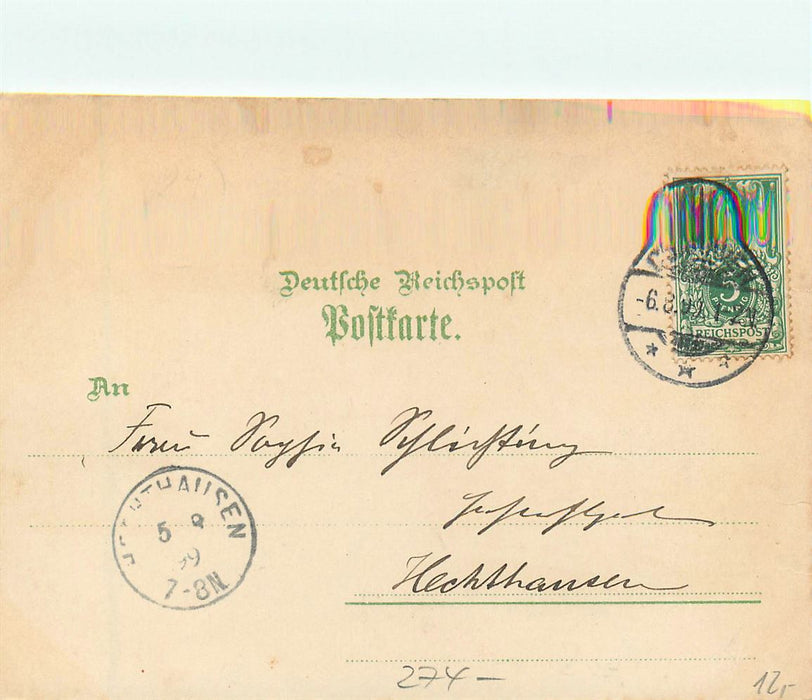 Deutsche Reichspost
Postkarte.
5
REICHSPOST
-6.8.99. 1
An
Frau Sophie Schlichting
HAUSEN
5 8
99
7-8N
Hechthausen
274-
12,-